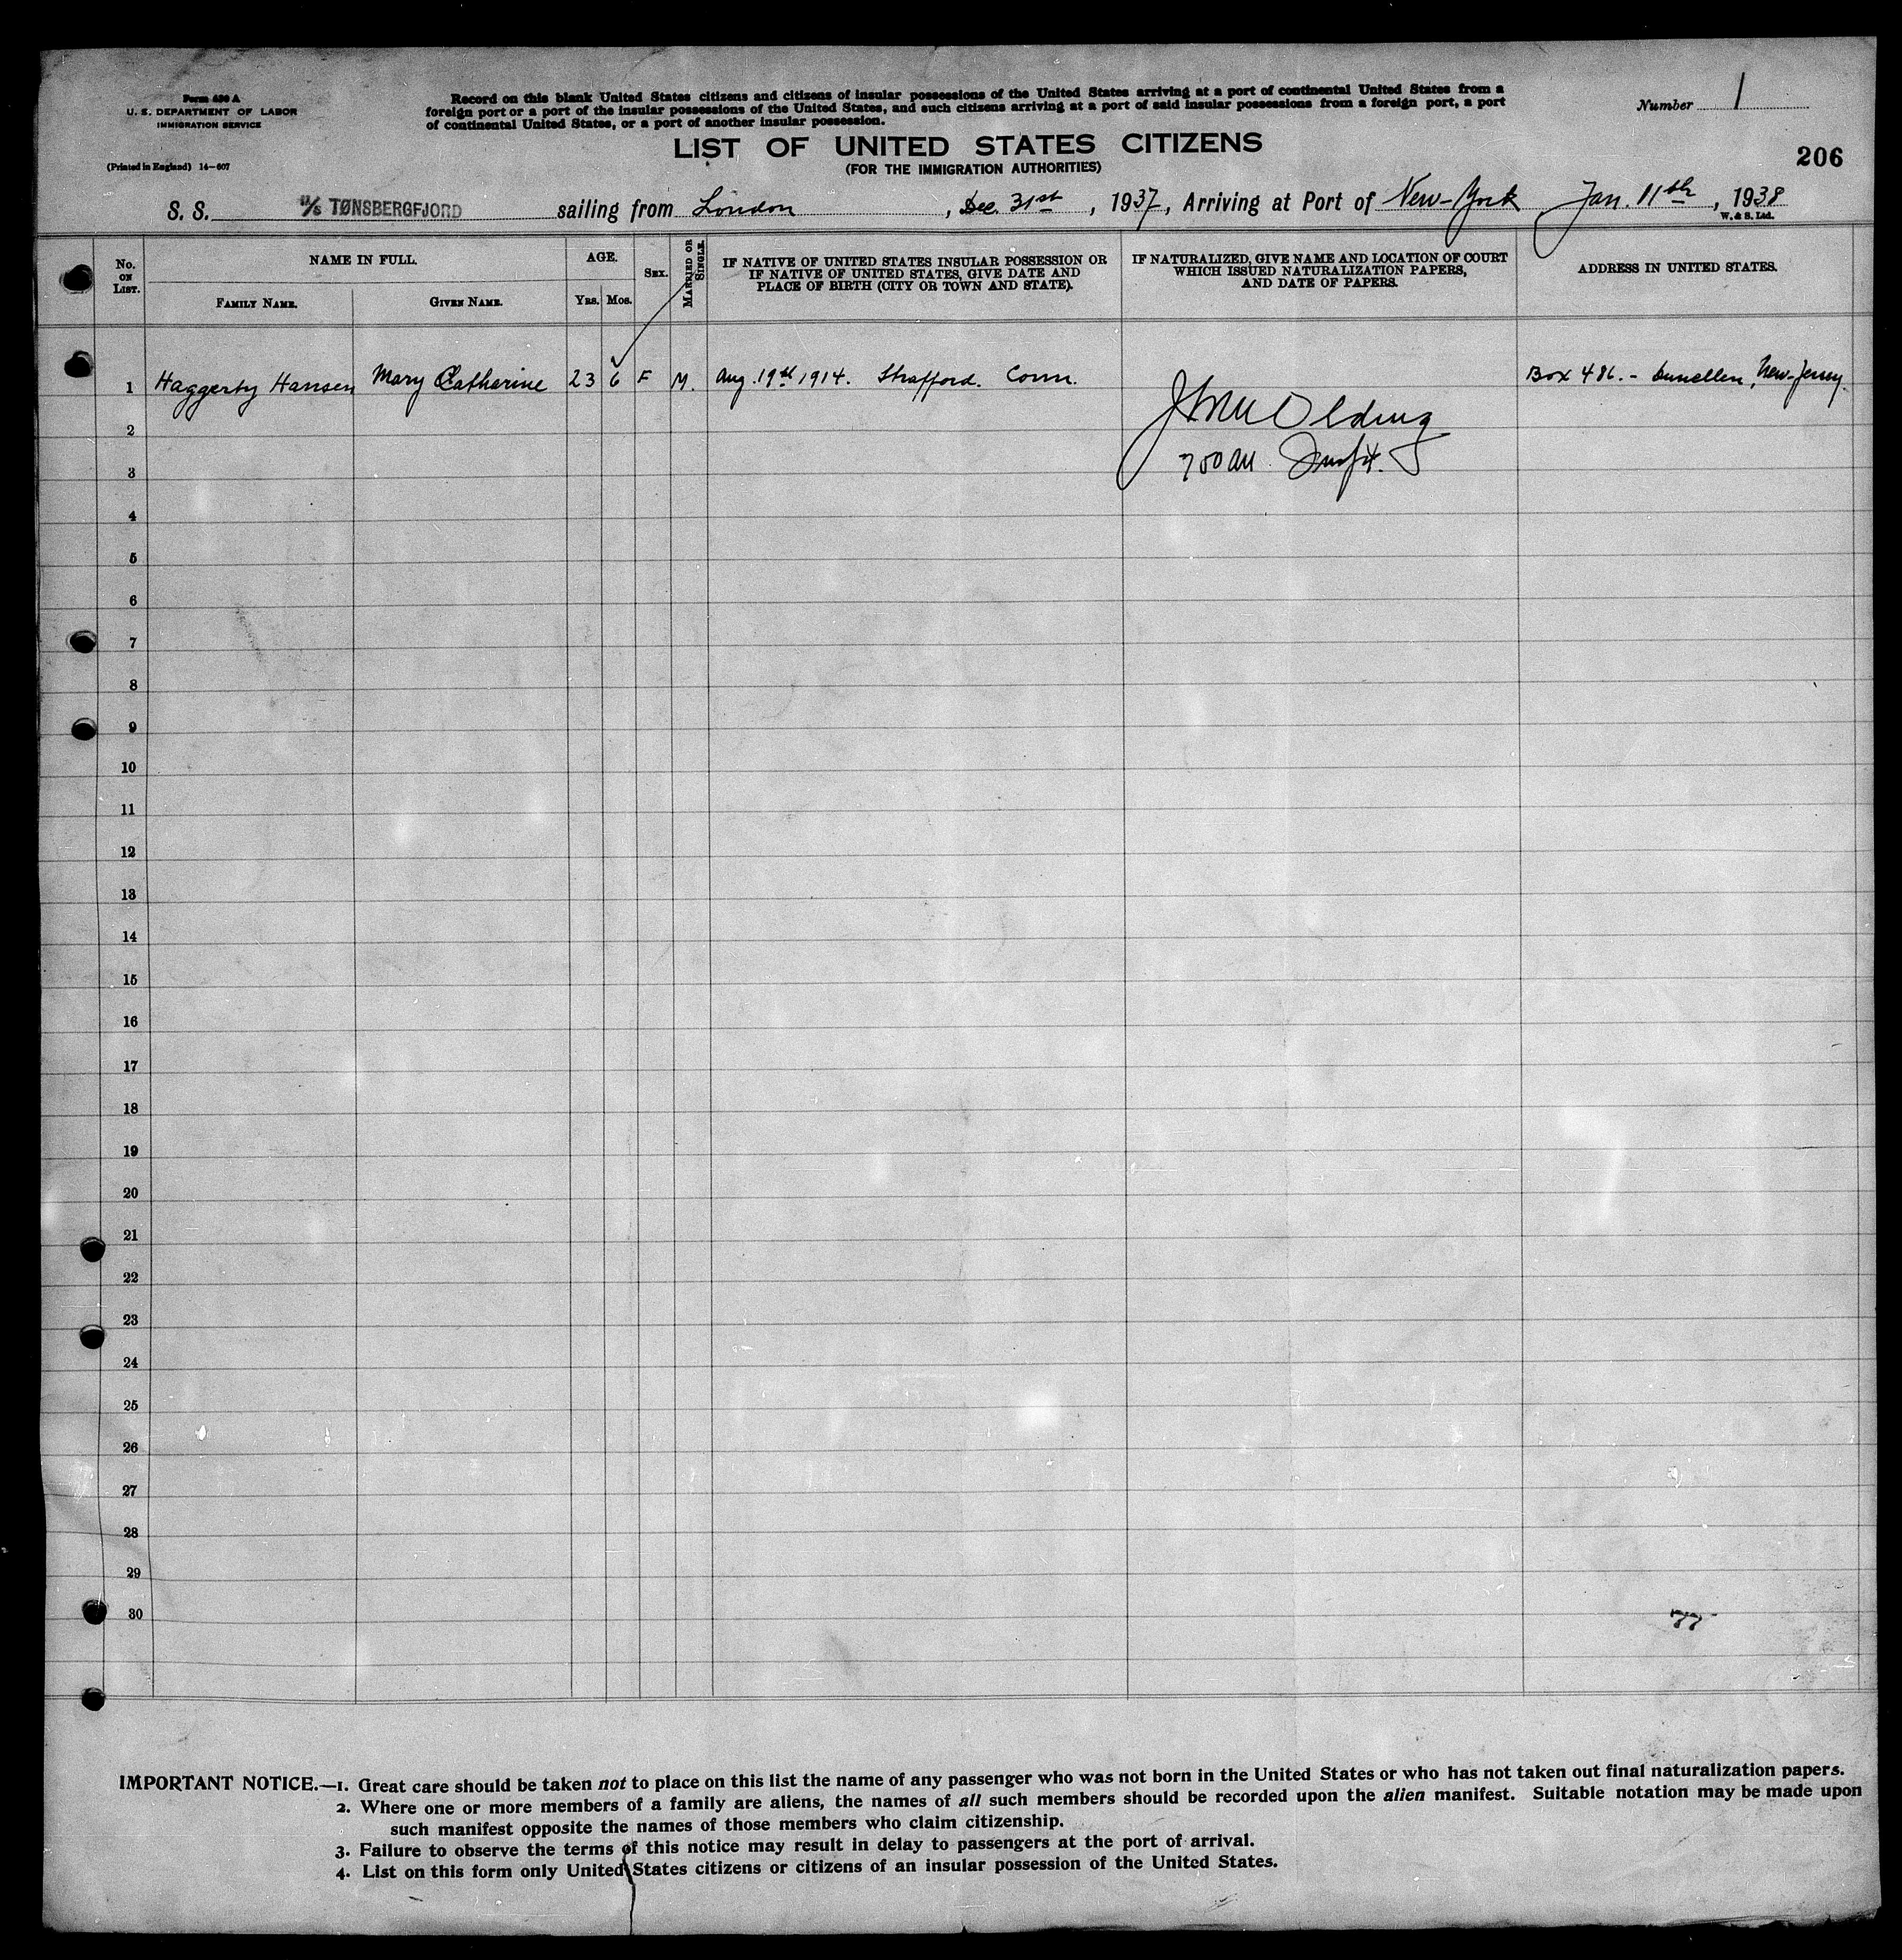 Form 630 A
U. S. DEPARTMENT OF LABOR
IMMIGRATION SERVICE
(Printed in England) 14—607
Record on this blank United States citizens and citizens of insular possessions of the United States arriving at a port of continental United States from a
foreign port or a port of the insular possessions of the United States, and such citizens arriving at a port of said insular possessions from a foreign port, a port
of continental United States, or a port of another insular possession.
Number 1
LIST OF UNITED STATES CITIZENS
(FOR THE IMMIGRATION AUTHORITIES)
206
S. S. M/S TØNSBERGFJORD sailing from London, Dec. 31st, 1937, Arriving at Port of New-York Jan. 11th, 1938
W. & S. Ltd.
No. ON LIST.
NAME IN FULL.
FAMILY NAME.
GIVEN NAME.
AGE.
YRS. MOS.
SEX.
MARRIED OR SINGLE.
IF NATIVE OF UNITED STATES INSULAR POSSESSION OR
IF NATIVE OF UNITED STATES, GIVE DATE AND
PLACE OF BIRTH (CITY OR TOWN AND STATE).
IF NATURALIZED, GIVE NAME AND LOCATION OF COURT
WHICH ISSUED NATURALIZATION PAPERS,
AND DATE OF PAPERS.
ADDRESS IN UNITED STATES.
1 Haggerty Hansen Mary Catharine 23 6 F M. Aug. 19th 1914. Strafford. Conn. Box 486. - Dunellen, New-Jersey.
2
3
4
5
6
7
8
9
10
11
12
13
14
15
16
17
18
19
20
21
22
23
24
25
26
27
28
29
30
77
IMPORTANT NOTICE.—1. Great care should be taken not to place on this list the name of any passenger who was not born in the United States or who has not taken out final naturalization papers.
2. Where one or more members of a family are aliens, the names of all such members should be recorded upon the alien manifest. Suitable notation may be made upon
such manifest opposite the names of those members who claim citizenship.
3. Failure to observe the terms of this notice may result in delay to passengers at the port of arrival.
4. List on this form only United States citizens or citizens of an insular possession of the United States.